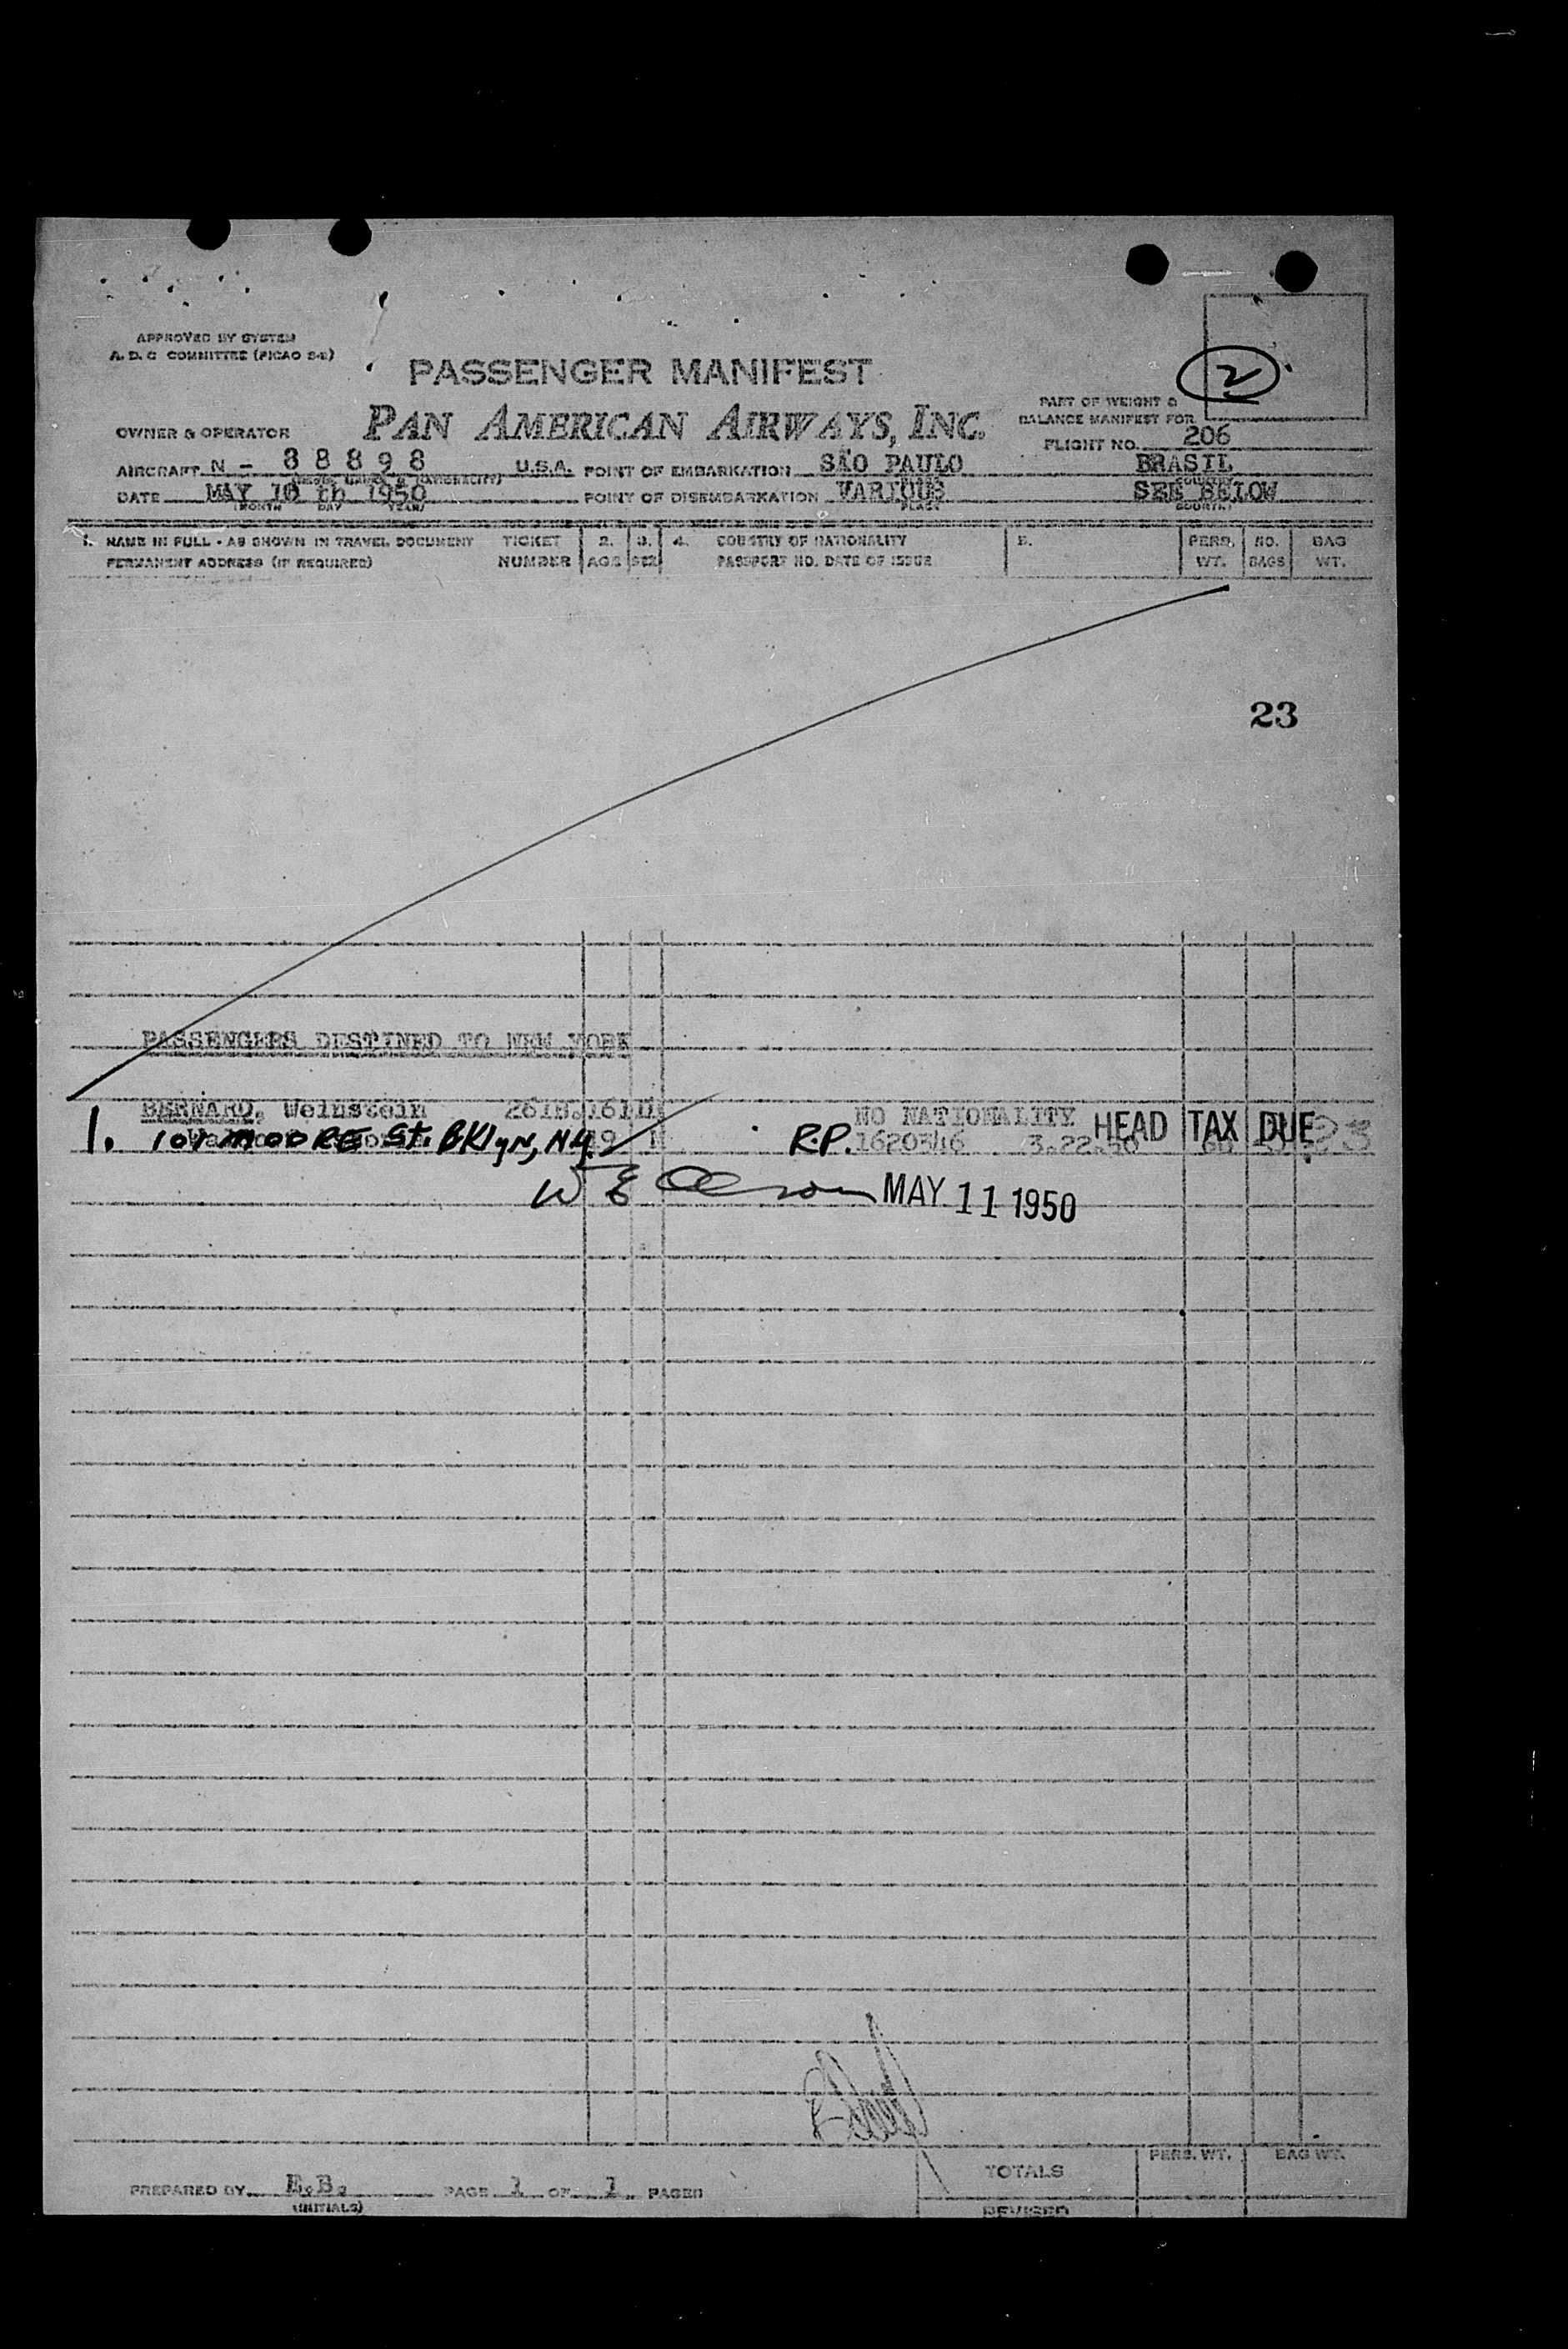 APPROVED BY SYSTEM
A. D. C COMMITTEE (PICAO 2-2)
PASSENGER MANIFEST
2
PART OF WEIGHT &
BALANCE MANIFEST FOR
OWNER & OPERATOR PAN AMERICAN AIRWAYS, INC. FLIGHT NO. 206
AIRCRAFT N - 88898 U.S.A. POINT OF EMBARKATION SÃO PAULO BRASIL
DATE MAY 10 th 1950 POINT OF DISEMBARKATION VARIOUS SEE BELOW
(MONTH DAY YEAR) PLACE COUNTRY
1. NAME IN FULL - AS SHOWN IN TRAVEL DOCUMENT TICKET 2. 3. 4. COUNTRY OF NATIONALITY 5. PERS. NO. BAG
PERMANENT ADDRESS (IF REQUIRED) NUMBER AGE SEX PASSPORT NO. DATE OF ISSUE WT. BAGS WT.
23
PASSENGERS DESTINED TO NEW YORK
BERNARD, Weinstein NO NATIONALITY HEAD TAX DUE
1. 101 MOORE St. BKlyN, N.Y. 19 R.P. 1620546 3.22.50
W E MAY 11 1950
PREPARED BY E.B. PAGE 1 OF 1 PAGES
(INITIALS)
TOTALS PERS. WT. BAG WT.
REVISED